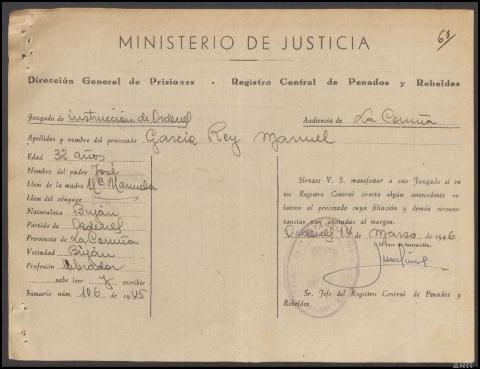 68
MINISTERIO DE JUSTICIA
Dirección General de Prisiones - Registro Central de Penados y Rebeldes
Juzgado de instrucción de Ordenes
Audiencia de La Coruña
Apellidos y nombre del procesado García Rey Manuel
Edad 32 años
Nombre del padre José
Idem de la madre Mª Manuela
Idem del cónyuge
Naturaleza Buján
Partido de Ordenes
Provincia de La Coruña
Vecindad Buján
Profesión labrador
sabe leer y escribir
Sumario núm. 106 de 1945
Sírvase V. S. manifestar a este Juzgado si en
ese Registro Central consta algún antecedente re-
lativo al procesado cuya filiación y demás circuns-
tancias van anotadas al margen.
Ordenes 14 de Marzo de 1946
El Juez de instrucción,
Sr. Jefe del Registro Central de Penados y
Rebeldes.